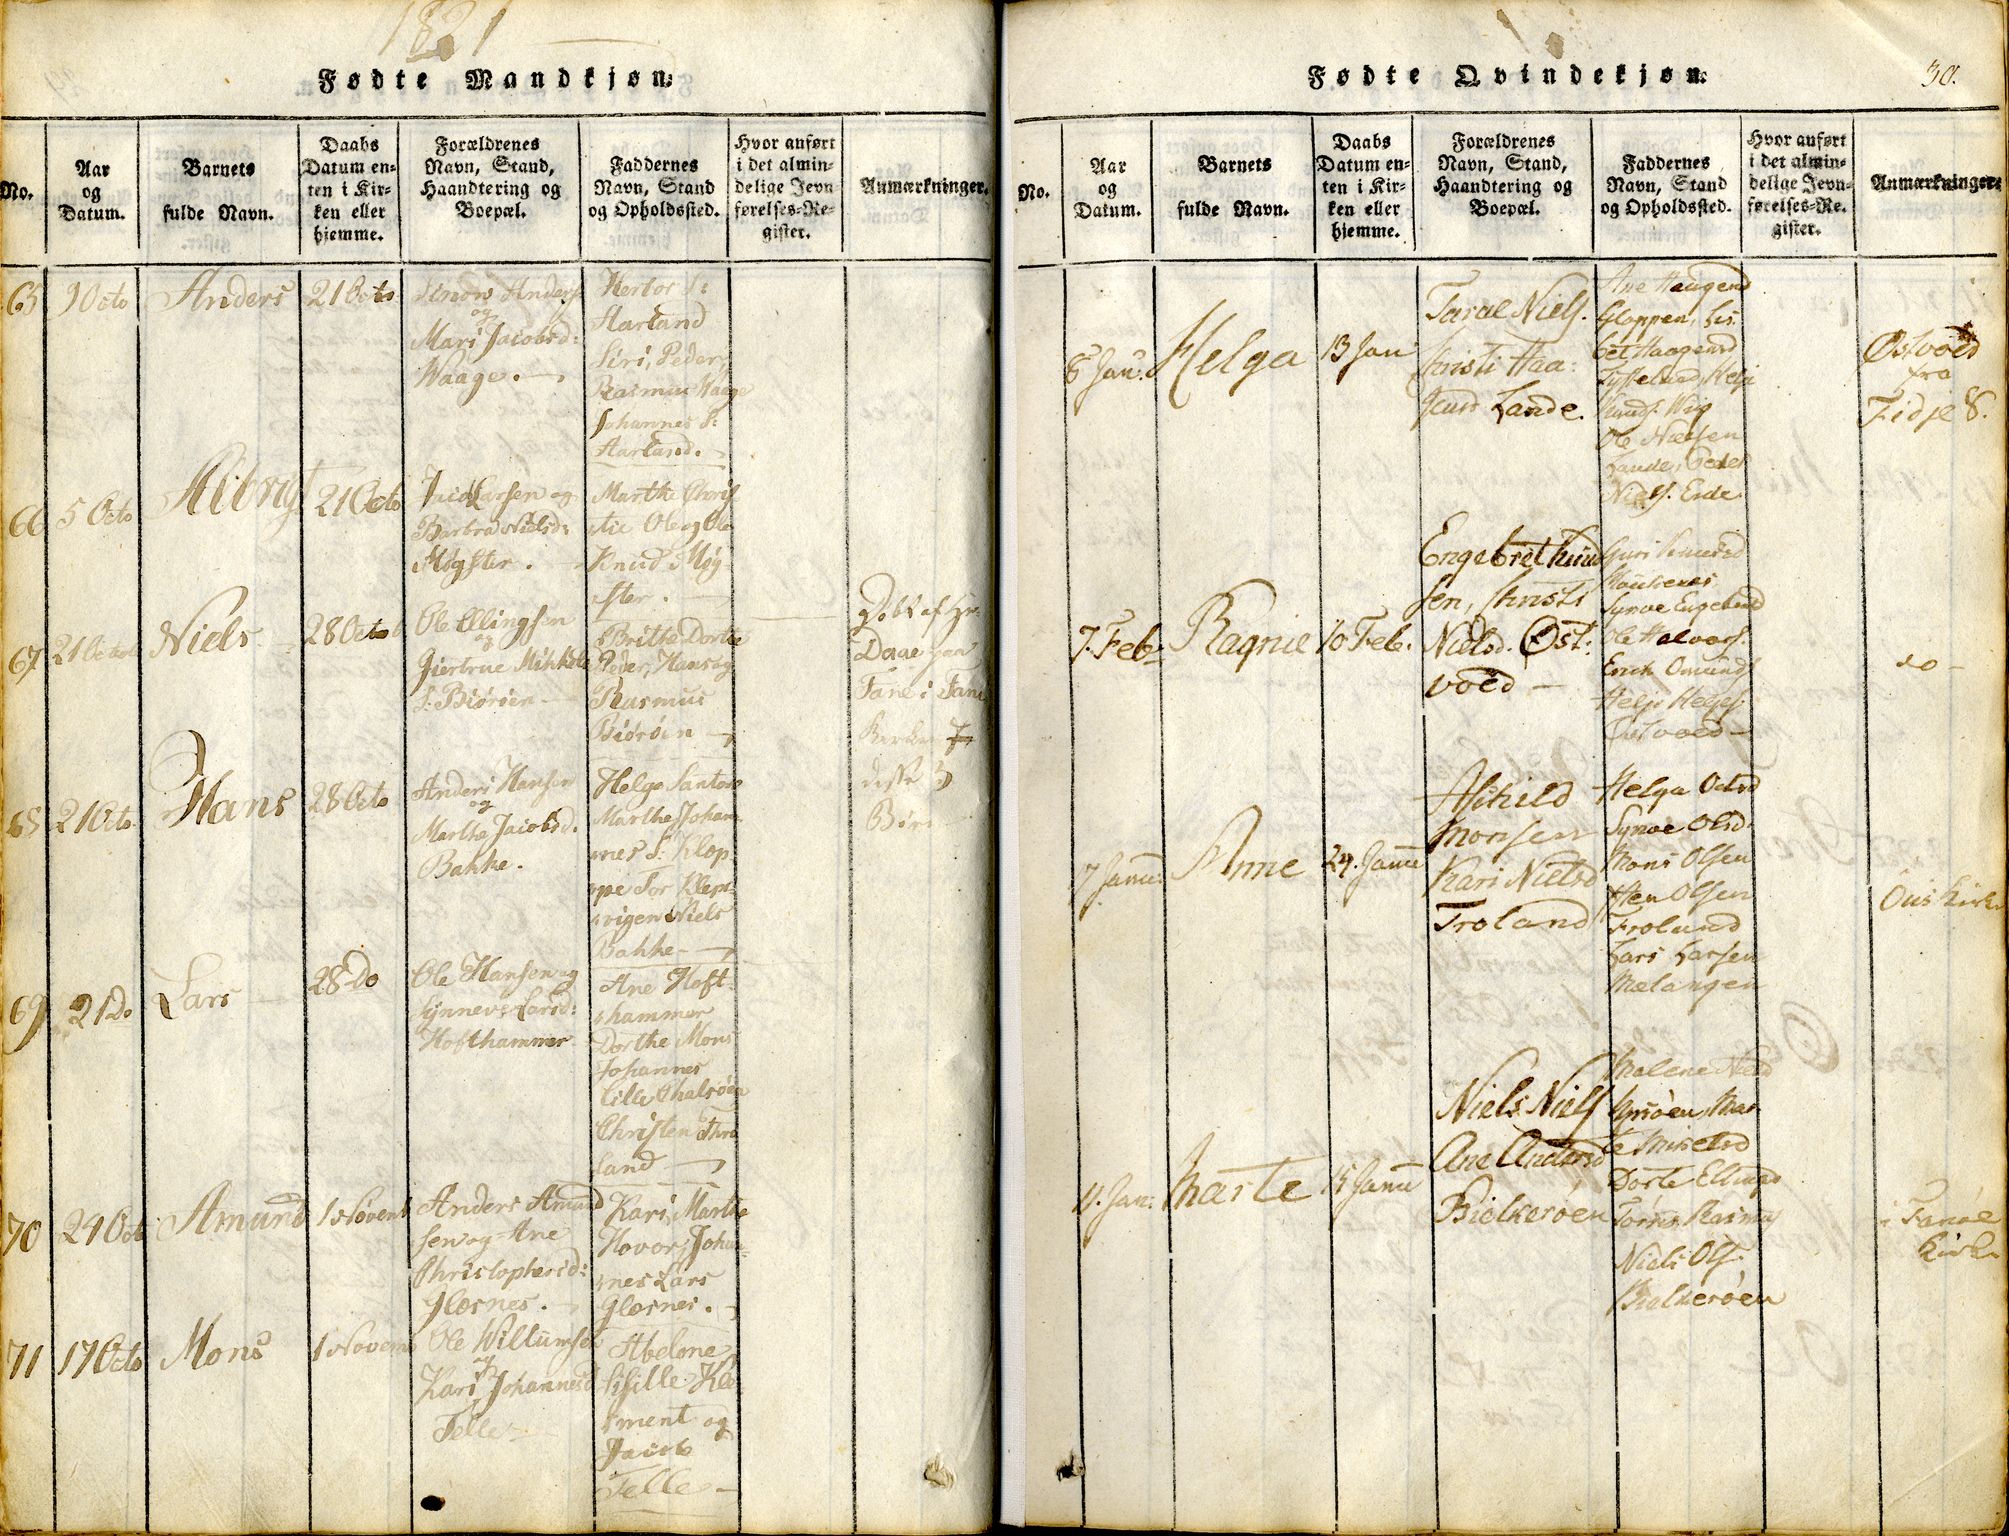 1821
Fødte Mandkjøn.
No.
Aar
og
Datum.
Barnets
fulde Navn.
Daabs
Datum en-
ten i Kir-
ken eller
hjemme.
Forældrenes
Navn, Stand,
Haandtering og
Boepæl.
Faddernes
Navn, Stand
og Opholdssted.
Hvor anført
i det almin-
delige Jevn-
førelses-Re-
gister.
Anmærkninger.
65
9 Octo
Anders
21 Octo
Simon Anders
og
Mari Jacobsd:
Waage.
Aarland
Siri, Peder,
Rasmus Waage
Johannes S:
Aarland.
66
5 Octo
21 Octo
Jacob Larsen og
Barbra Nielsd:
Møgster.
Marthe Chris
stie Ole og Ole
Knud Møg
ster.
67
21 Octo
Niels
28 Octo
Ole Ellingsen
og
Giertrue Mikkels
d. Biørøen
Britthe Dorthe
Peder, Hans og
Rasmus
Biørøen
Døbt af Hr.
Daae paa
Fane i Fane
Kirke
68
21 Octo
Hans
28 Octo
Anders Hansen
og
Marthe Jacobsd.
Bakke.
Helge
Marthe Johan
nes S: Klop
pe Tor Klep
vigen Niels
Bakke
69
21 Do
Lars
28 Do
Ole Hansen og
Synneve Larsd:
Hofthammer
Ane Hoft
hammer
Dorthe Mons
Johannes
Lille
Christen
land
70
24 Oct
Amund
1 Novemb
Anders Amund
sen og Ane
Christophersd:
Glesnes.
Kari, Marthe
Hovor, Johan
nes Lars
Glesnes.
71
17 Octo
Mons
1 Novemb
Ole Willumsen
og
Kari Johannesd
Telle
Abelone
Sisille Kle
ment og
Jacob
Telle
30.
Fødte Qvindekjøn.
No.
Aar
og
Datum.
Barnets
fulde Navn.
Daabs
Datum en-
ten i Kir-
ken eller
hjemme.
Forældrenes
Navn, Stand,
Haandtering og
Boepæl.
Faddernes
Navn, Stand
og Opholdssted.
Hvor anført
i det almin-
delige Jevn-
førelses-Re-
gister.
Anmærkninger.
8 Jan:
Helga
13 Jan
Taral Niels.
Christi Haa-
Lande.
Ane Haugens
Gloppen, Lis
bet Haagensd
Knuds. Wig
Ole Nielsen
Lande, Peder
Niels. Erde
Østvoed
fra
7. Feb
Ragnie
10 Feb.
Engebret Knud
sen, Christi
Nielsd. Øst-
voed
Guri
Synve Engebretsd
Ole Halvors.
Erich Omunds
Helje Heljes
Østvoed
do
7 Janu:
Anne
24. Janu
Askild
Monsen
Kari Nielsd
Troland
Helga Olsd
Synve Olsd
Mons Olsen
Olsen
Troland
Lars Larsen
Mælangen
Ouskirke
4. Jan:
Marte
14 Janu
Niels Niels
Ane Andersd
Bielkerøen
Malene Nielsd
Dorte Ellings
Rasmus
Niels Ols.
Bielkerøen
i Fanøe
Kirke